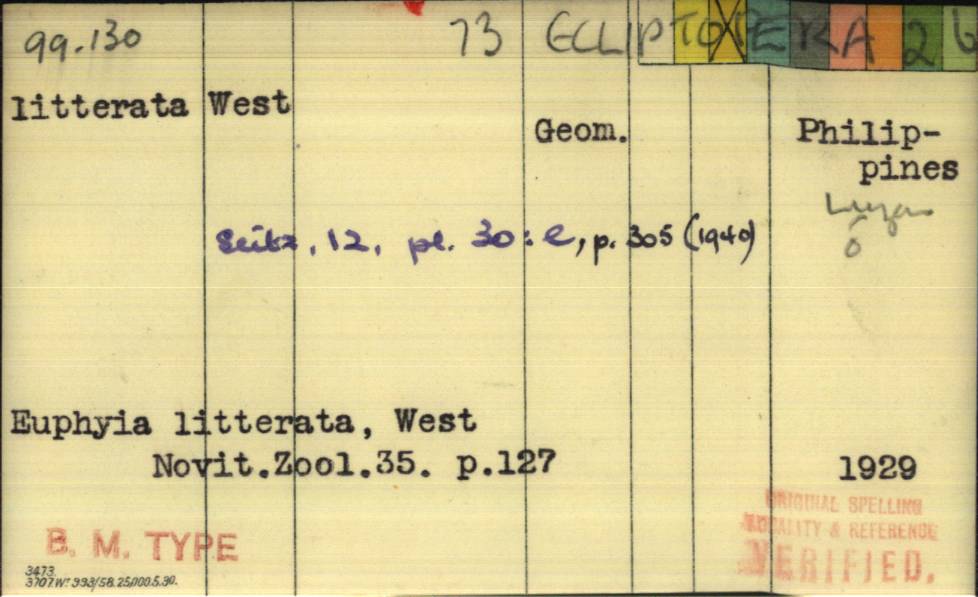 99.130 73 ECLIPTOPERA 26
litterata West
Geom. Philip-
pines
Luzon
Seitz, 12, pl. 30: e, p. 305 (1940)
Euphyia litterata, West
Novit.Zool.35. p.127 1929
ORIGINAL SPELLING
LOCALITY & REFERENCE
VERIFIED.
B. M. TYPE
3473.
3707.Wt 993/58.25,000.5.30.